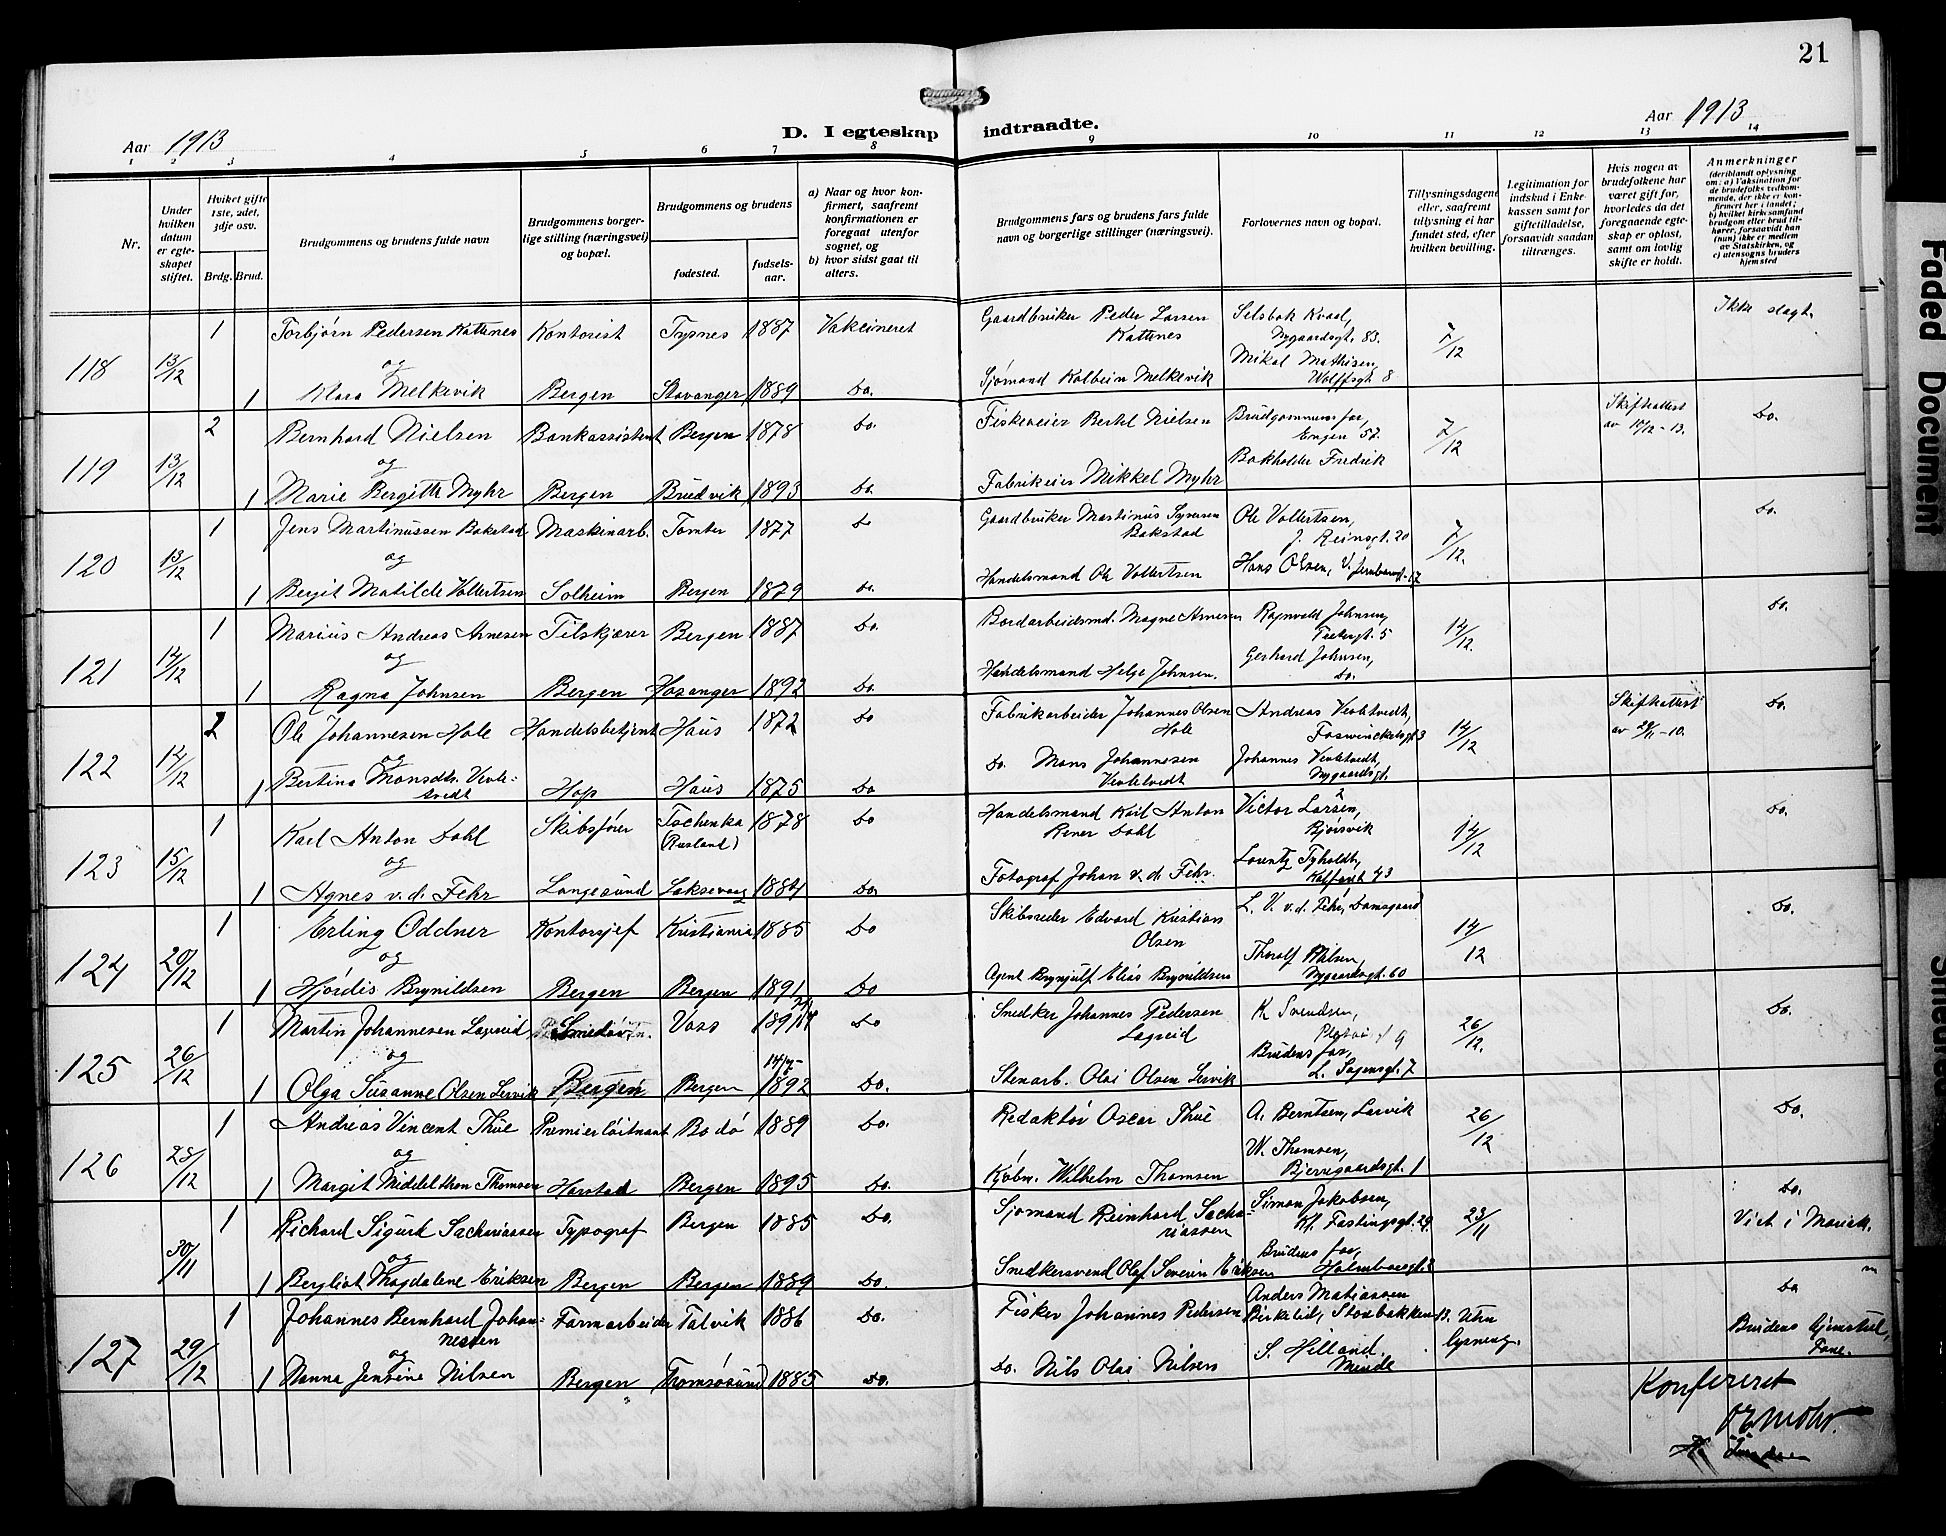 21
Aar 1913
D. I egteskap indtraadte.
Aar 1913
1 2 3 4 5 6 7 8 9 10 11 12 13 14
Nr.
Under hvilken datum er egteskapet stiftet.
Hvilket gifte 1ste, 2det, 3dje osv.
Brdg. Brud.
Brudgommens og brudens fulde navn
Brudgommens borgerlige stilling (næringsvei) og bopæl.
Brudgommens og brudens
fødested. fødselsaar.
a) Naar og hvor konfirmert, saafremt konfirmationen er foregaat utenfor sognet, og
b) hvor sidst gaat til alters.
Brudgommens fars og brudens fars fulde navn og borgerlige stillinger (næringsvei).
Forlovernes navn og bopæl.
Tillysningsdagene eller, saafremt tillysning ei har fundet sted, efter hvilken bevilling.
Legitimation for indskud i Enkekassen samt for giftetilladelse, forsaavidt saadan tiltrænges.
Hvis nogen av brudefolkene har været gift før, hvorledes da det foregaaende egteskap er opløst, samt om lovlig skifte er holdt.
Anmerkninger
(deriblandt oplysning om: a) Vaksination for de brudefolks vedkommende, der ikke er konfirmert her i landet; b) hvilket kirkesamfund brudgom eller brud tilhører, forsaavidt han (hun) ikke er medlem av Statskirken, og c) utensogns bruders hjemsted
118 13/12 1 Torbjørn Pedersen Kattenes Kontorist Tysnes 1887 Vakcineret Gaardbruker Peder Larsen Kattnes Selsbak Kvaal, Nygaardsgt. 83. 7/12 Ikke slagt.
og
1 Klara Melkevik Bergen Stavanger 1889 Do. Sjømand Kolbein Melkevik Mikal Mathisen, Wolffsgt 8
119 13/12 2 Bernhard Nielsen Bankassistent Bergen 1878 Do. Fiskeeier Bertel Nielsen Brudgommens far, Engen 57. 7/12 Skifteattest av 10/12-13. Do.
og
1 Marie Bergitte Myhr Bergen Bruvik 1893 Do. Fabrikeier Mikkel Myhr Bokholder Fredrik
120 13/12 1 Jens Martinussen Bakstad Maskinarb. Tomter 1877 Do Gaardbruker Martinus Syversen Bakstad Ole Vollertsen, J. Reinsgt. 20 7/12. Do.
og
1 Bergit Matilde Vollertsen Solheim Bergen 1879 Do. Handelsmand Ole Vollertsen Hans Olsen, V. Jernbanegt. 17
121 14/12 1 Marius Andreas Arnesen Tilskjærer Bergen 1887 Do. Bordarbeidsmd. Magne Arnesen Ragnvald Johnsen, 5 14/12. Do.
og
1 Ragna Johnsen Bergen Hosanger 1892 Do. Handelsmand Helge Johnsen. Gerhard Johnsen, Do.
122 14/12 2 Ole Johannesen Hole Handelsbetjent Haus 1872 Do Fabrikarbeider Johannes Olsen Hole Andreas Vevletvedt, Foswinckelsgt 3 14/12 Skifteattest av 29/11-10. Do.
og
1 Bertina Monsdtr. Vevletvedt Hop Haus 1875 Do Do. Mons Johannesen Vevletvedt Johannes Vevletvedt, Nygaardsgt.
123 15/12 1 Karl Anton Dahl Skibsfører Tschenka (Rusland) 1878 Do Handelsmand Karl Anton Rener Dahl Victor Larsen, Bjørsvik 14/12 Do.
og
1 Agnes v.d. Fehr Langesund Laksevaag 1884 Do. Fotograf Johan v.d. Fehr. Lorentz Tyholdt, Kalfaret 43
124 20/12 1 Erling Oddner Kontorsjef Kristiania 1885 Do Skibsreder Edvard Kristian Olsen L. V. v.d. Fehr, Damsgaard 14/12 Do.
og
1 Hjørdis Brynildsen Bergen Bergen 1891 Do Agent Brynjulf Elias Brynildsen Thoralf Nilsen, Nygaardsgt. 60
125 26/12 1 Martin Johannesen Lagreid Voss 1891 Do Snedker Johannes Pedersen Lagreid K. Svendsen, 9 26/12. Do.
og
1 Olga Susanne Olsen Lervik Bergen Bergen 14/7-1892 Do. Stenarb. Olai Olsen Lervik Brudens far, L. Sagensgt. 7
126 28/12 1 Andreas Vincent Thue Premierløitnant Bodø 1889 Do. Redaktør Oscar Thue A. Berntsen, Larvik 26/12 Do.
og
1 Margit Middelthon Thomsen Harstad Bergen 1895 Do. Kjøbm. Wilhelm Thomsen W. Thomsen, Bjerregaardsgt. 1
30/11 1 Richard Sigurd Sachariassen Typograf Bergen 1885 Do. Sjømand Reinhard Sachariassen Simon Jakobsen, Kl. Fastingsgt. 29 23/11 Do. Viet i Mariek.
og
1 Bergliot Magdalene Eriksen Bergen Bergen 1889 Do. Snedkersvend Olaf Severin Eriksen Brudens far, Holmboegt. 2
127 29/12 1 Johannes Bernhard Johannessen Farmarbeider Talvik 1886 Do. Fisker Johannes Pedersen Anders Matiassen Birkelid, Storbakken 13. Uten lysning. Do Brudens hjemsted, Fane.
og
1 Nanna Jensine Nilsen Bergen Thomsøsund 1885 Do. Do. Nils Olai Nilsen S. Hilland. Minde
Konfereret
O E Mohr.
Faded Document